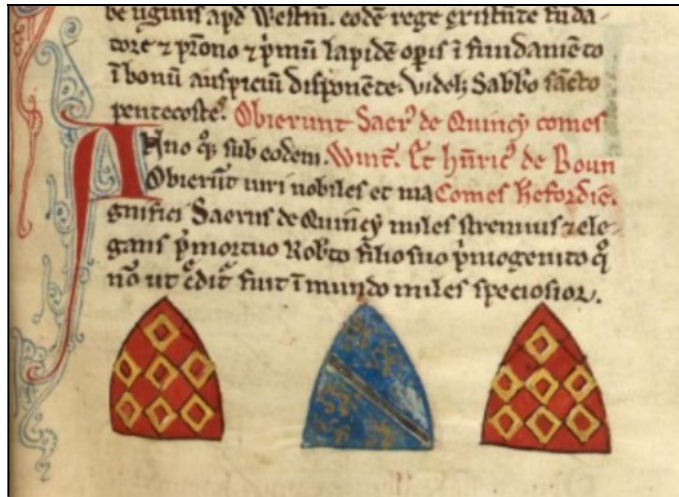 be uginis apd Westm̄. eodē rege existēte fūda-
tore ⁊ pͦno ⁊ pͥmū lapidē opis ī fundamēto
ī bonū auspiciū disponēte. videlꝫ Sabb̄o sancto
pentecostes. Obierunt Saerꝰ de Quincy comes
Anno qͦꝫ sub eodem. Wint̄. Et hēricꝰ de Boun
Obierūt uiri nobiles et ma Comes herfordie.
gnifici Saerus de Quincy miles strenuus ⁊ ele-
gans pͥmortuo Rob̄to filio suo pͥmogenito qͦ
nō ut cͬdit̄ fuit ī mundo miles speciosior.